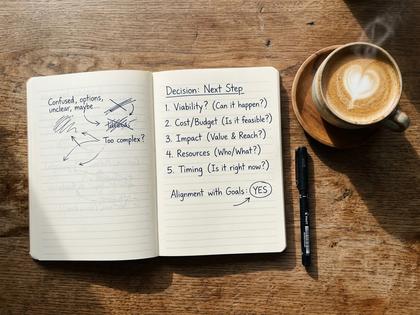 Confused, options,
unclear, maybe...
Too complex?
Decision: Next Step
1. Viability? (Can it happen?)
2. Cost/Budget (Is it feasible?)
3. Impact (Value & Reach?)
4. Resources (Who/What?)
5. Timing (Is it right now?)
Alignment with Goals: YES